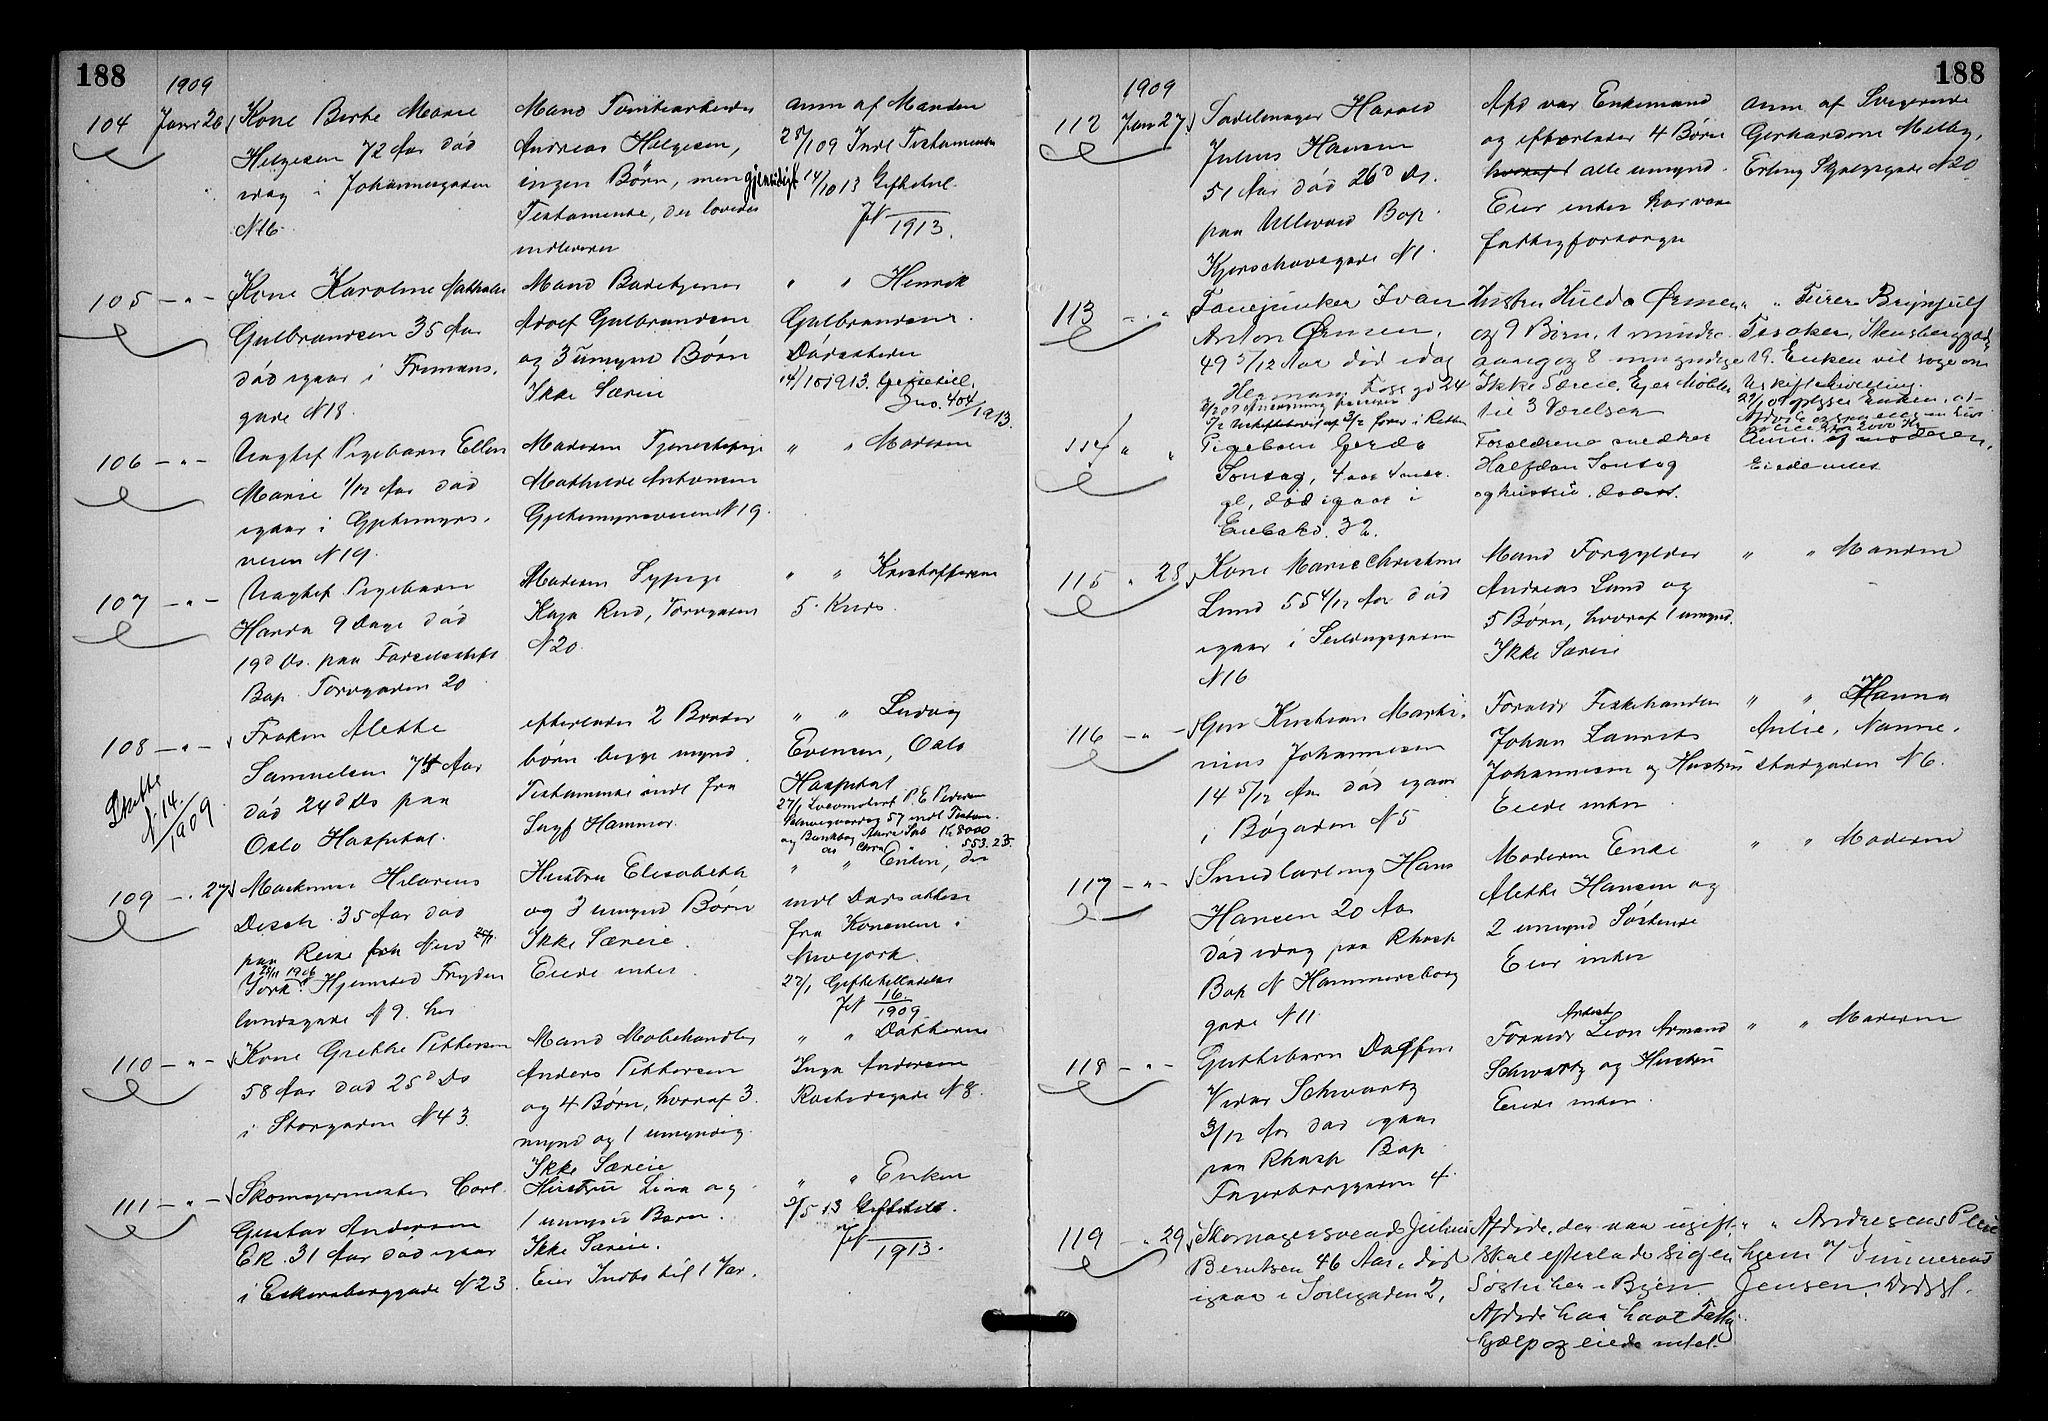 188
1909
104 Janr 26
Kone Berte Marie
Helgesen 72 Aar död
idag i Johannesgaden
N 16.
Mand Tomtearbeider
Andreas Helgesen,
ingen Börn, men gjensidigt
Testamente, der loves
indleveret
anm af Manden
28/1 09 Indl Testamente
14/10 13 Giftetil.
JN
1913.
105 — " —
Kone Karoline Mathilde
Gulbrandsen 35 Aar
död igaar i Frimans.
gade N 18.
Mand Badetjener
Adolf Gulbrandsen
og 3 umynd Börn
Ikke Særeie
" " Henrik
Gulbrandsen.
Dödsattester
14/10 1913. Giftetill.
Jno. 404/1913.
106 — " —
Uægtef Pigebarn Ellen
Marie 1/12 Aar död
igaar i Gjetemyrs.
veien N 19.
Moderen Tjenestepige
Mathilde Antonsen
Gjetemyrsveien N 19.
" " Moderen
107 — " —
Uægtef Pigebarn
Harda 9 Dage död
19d Ds. paa Fødselsstift
Bap. Torvgaden 20
Moderen Sypige
Kaja Rud, Torvgaden
N 20.
" " Kristoffersen
5. Kreds.
108 — " —
Fröken Alette
Samuelsen 74 Aar
död 24d Ds paa
Oslo Hospital.
Skifte
N. 14.
1909.
efterlader 2 Broder
börn begge mynd.
Testamente indl fra
Sagf Hammer.
" " Ludvig
Evensen, Oslo
Hospital
og Bankbog Akers Spb Kr 8000
553.25.
109 — " 27
Maskinist Hilarius
Desch. 35 Aar död
paa Reise fra New
York. 1906 Hjemsted Fryden
lundsgade N 9. her
Hustru Elisabeth
og 3 umynd Börn
Ikke Særeie.
Eiede intet.
" " Enken, der
indl Dødsattest
fra Konsulen i
Newyork.
27/1 Giftetilladelse
JN 16.
1909.
110 — " —
Kone Grethe Pettersen
58 Aar död 25d Ds
i Storgaden N 43.
Mand Möbelhandler
Anders Pettersen
og 4 Börn, hvoraf 3.
mynd og 1 umyndig.
Ikke Særeie
" " Datteren
Inga Andersen
Rostedsgade N 8.
111 — " —
Skomagermester Carl
Gustav Andersen
Ek. 31 Aar död igaar
i Eckersberggade N 23.
Hustru Lina og
1 umynd Barn.
Ikke Særeie.
Eier Indbo til 1 Vær.
" " Enken
2/5 13 Giftetill.
JN
1913.
188
1909
112 Janr 27
Sadelmager Harald
Julius Hansen
51 Aar död 26d Ds.
paa Ullevaal Bap.
Kjerschowsgade N 1.
Afd var Enkemand
og efterlader 4 Börn
hvoraf alle umynd.
Eier intet har vær
fattigforsorge
anm af Svigerinde
Gerhardine Melby,
Erling Skjalgsgade N 20
113 — " "
Fanejunker Ivan
Anton Ørmen,
49 5/12 Aar död idag
Herman Foss gd 24
Hustru Hulda Ørmen
og 9 Börn, 1 minder.
aarig og 8 umyndige
Ikke Særeie. Ejer Möbler
til 3 Værelser
" " Furer Brynjulf
Tesaker, Stensberggad.
19. Enken vil søge om
Uskiftebevilling.
2000 Kr
114 " "
Pigebarn Gerda
Sontag, 4 aar
gl, död igaar i
32.
Forældrene snedker
Halfdan Sontag
og hustru.
Anm. af moderen.
Eiede intet
115 " 28
Kone Marie Christine
Lund 55 4/12 Aar död
igaar i Seilduksgaden
N 16
Mand Forgylder
Andreas Lund og
5 Börn, hvoraf 1 umynd.
Ikke Særeie
" " Manden
116 — " —
Gut Kristian Marti.
nius Johannesen
14 5/12 Aar död igaar
i Bögaden N 5
Forældr Fiskehandler
Johan Laurits
Johannesen og Hustru
Eiede intet.
" " Hanna
Aulie, Nanne.
stadgaden N 6.
117 — " —
Smedlærling Hans
Hansen 20 Aar
död idag paa Rhosp
Bap N Hammersborg
gade N 11
Moderen Enke
Alette Hansen og
2 umynd Söskende
Eier intet
" " Moderen
118 — " —
Guttebarn Dagfin
Vidar Schwartz
3/12 Aar död igaar
paa Rhosp Bap
Fagerborggaden 4.
Forældr Artist Leon Armand
Schwartz og Hustru
Eiede intet.
" " Moderen
119 — " 29
Skomagersvend Julius
Berntsen 46 Aar, död
igaar i Torvgaden 2.
Afdøde, der var ugift,
skal efterlade sig en
Søster her i Byen.
Afdøde har havt Fattig.
hjælp og eiede intet.
" " Andresens Pleie
hjem v/ Gunnerius
Jensen,